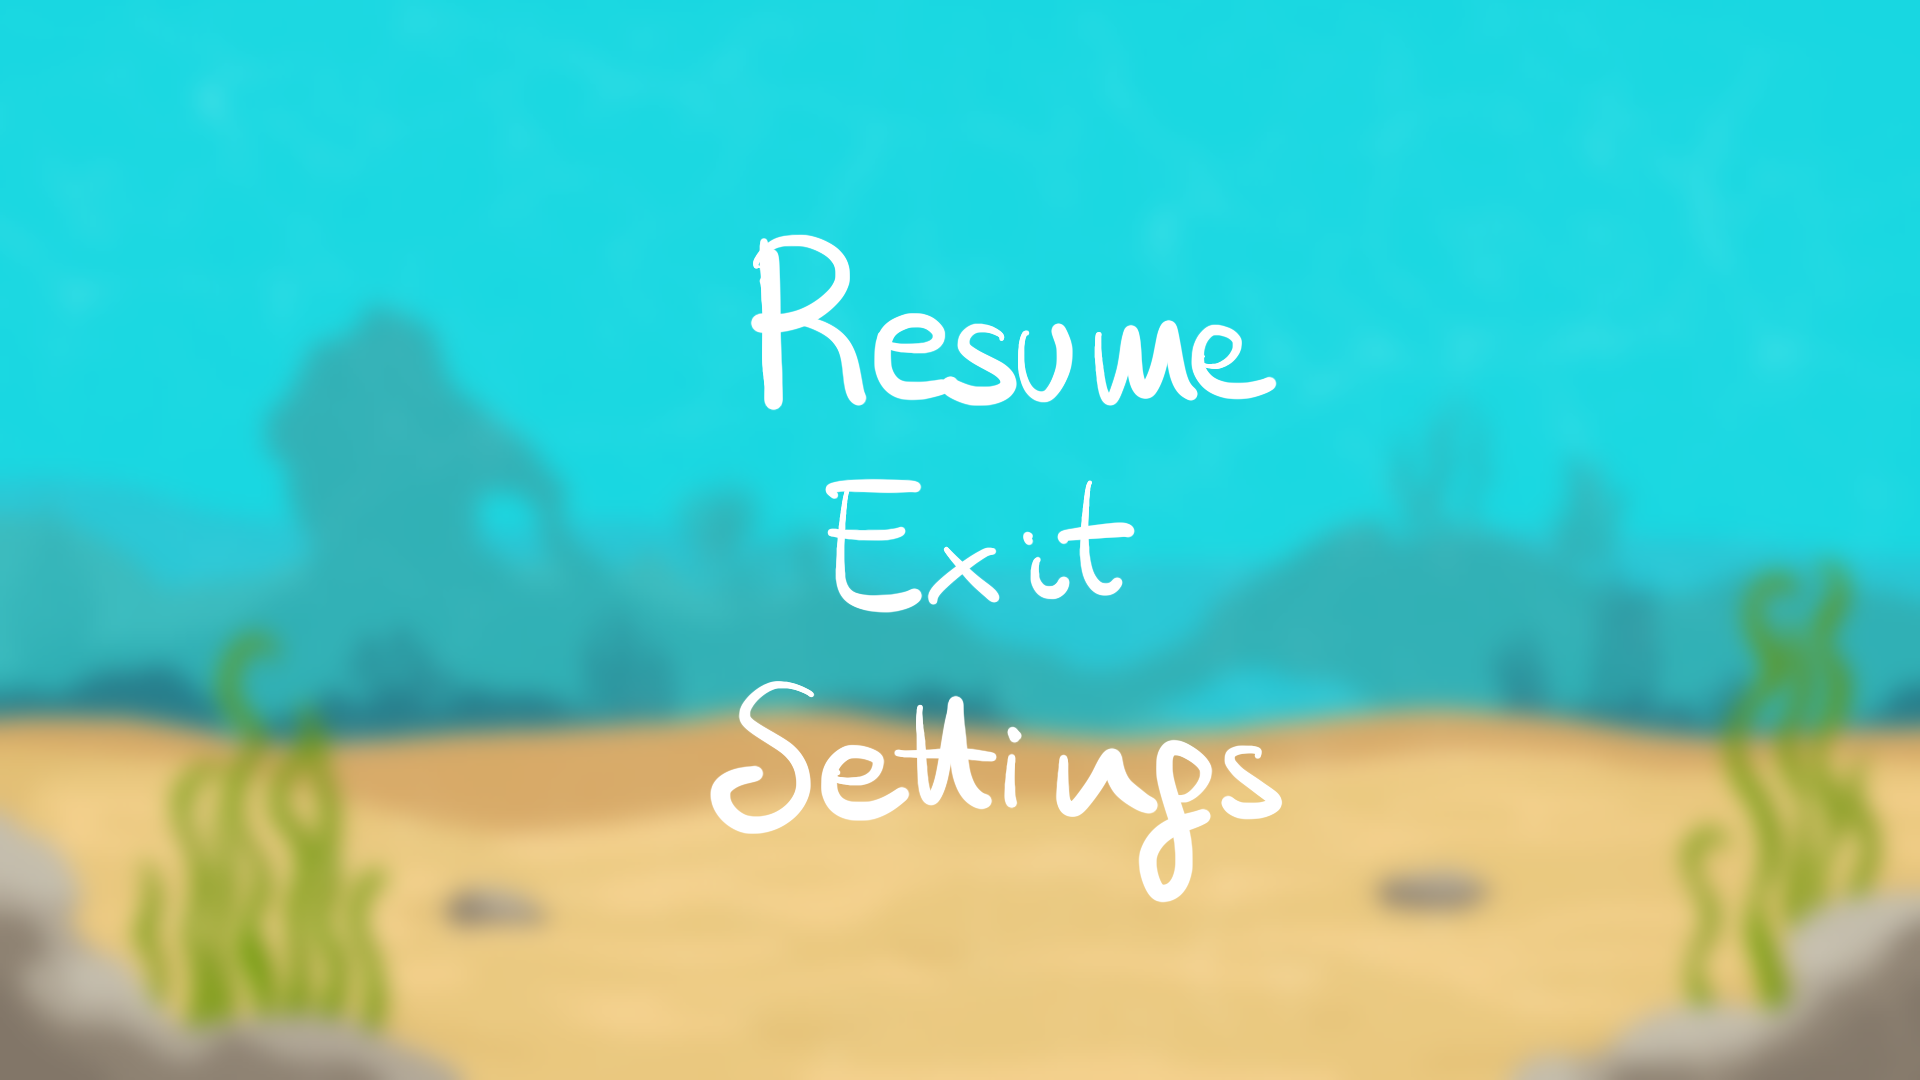 Resume
Exit
Settings